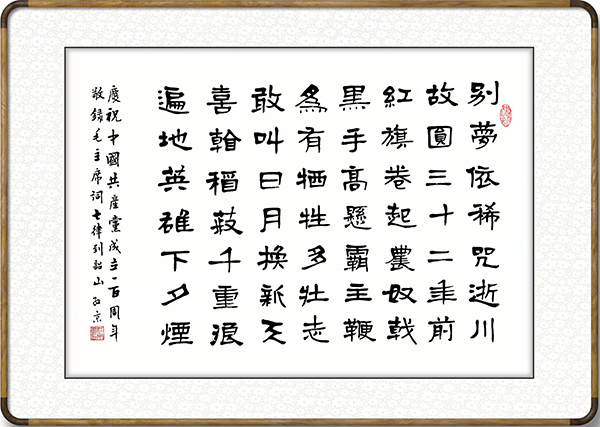 別夢依稀咒逝川
故圓三十二年前
紅旗卷起農奴戟
黑手高懸霸主鞭
為有牺牲多壮志
敢叫日月換新天
喜看稻菽千重浪
遍地英雄下夕煙
慶祝中國共產黨成立一百周年
敬録毛主席詞七律到韶山